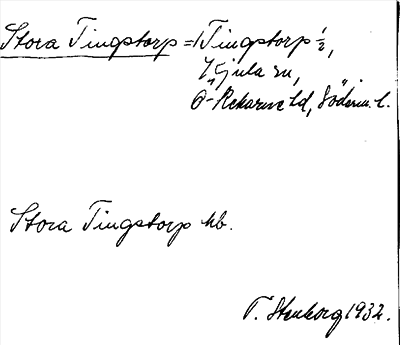 Stora Tingstorp = Tingstorp 1/2,
sn,
Ö-Rekarne hd, Söderm. l.
Stora Tingstorp hb.
T. Stenborg 1932.